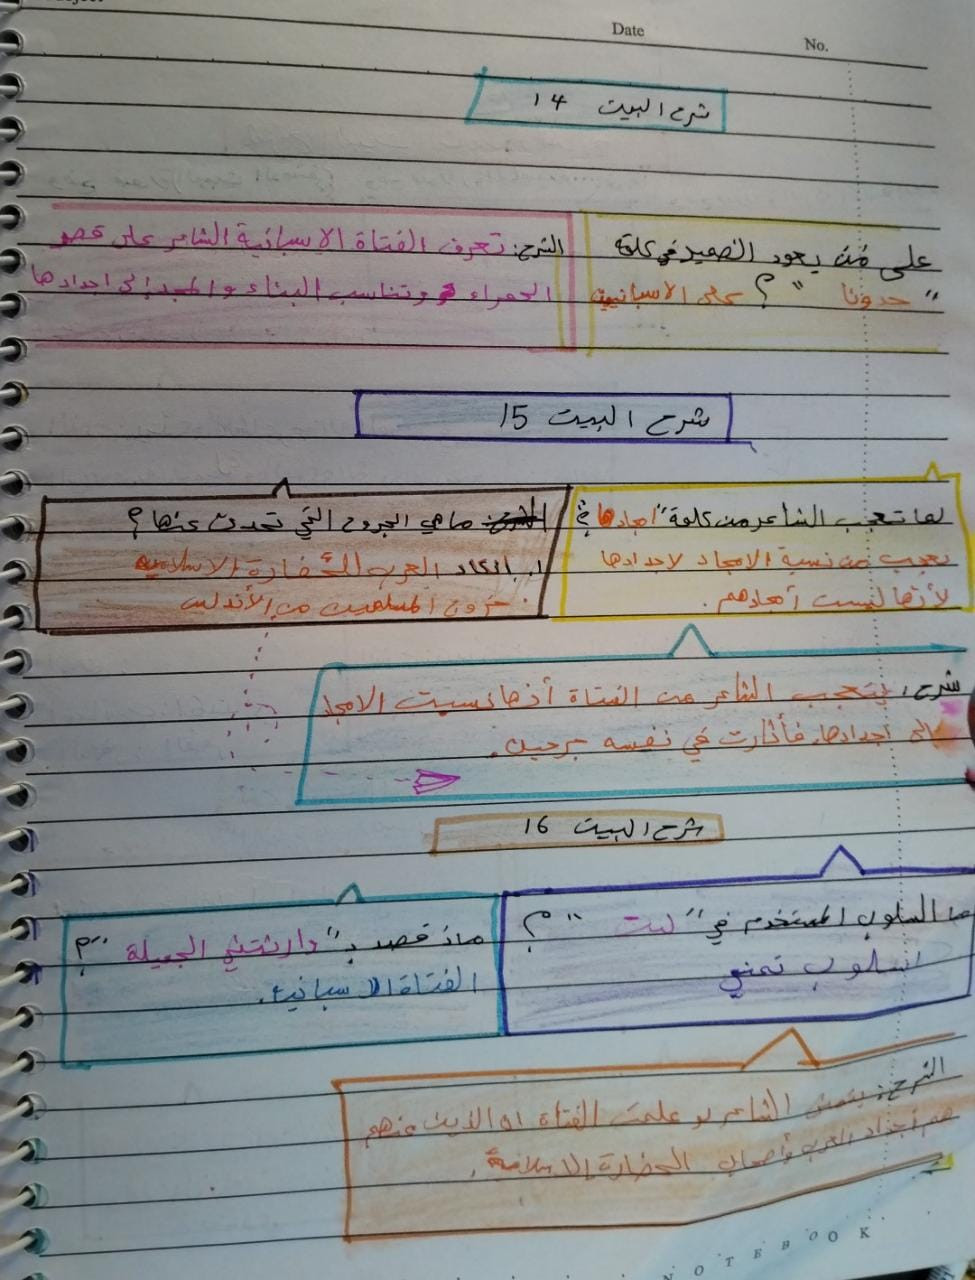 Date
No.
شرح البيت 14
على من يعود الضمير في كلمة
" جدودنا " ؟ على الاسبانيين
الشرح: تعرف الفتاة الاسبانية الشاعر على قصر
الحمراء وتناسب البناء والمجد إلى اجدادها
شرح البيت 15
لما تعجب الشاعر من كلمة "امجادها" ؟
تعجب من نسبة الامجاد لاجدادها
لأنها ليست أمجادهم .
ما هي الجروح التي تحدث عنها ؟
1. انكار العرب للحضارة الاسلامية
. خروج المسلمين من الأندلس
شرح: يتعجب الشاعر من الفتاة أنها نسبت الامجاد
الى اجدادها. فأثارت في نفسه جرحين.
شرح البيت 16
ما اسلوب المستخدم في "ليت " ؟
اسلوب تمني
ماذا قصد بـ "وارثتي الجميلة " ؟
الفتاة الاسبانية.
الشرح: يتمنى الشاعر لو علمت الفتاة ان الذين عنهم
هم أجداد العرب وأصحاب الحضارة الاسلامية.
NOTEBOOK